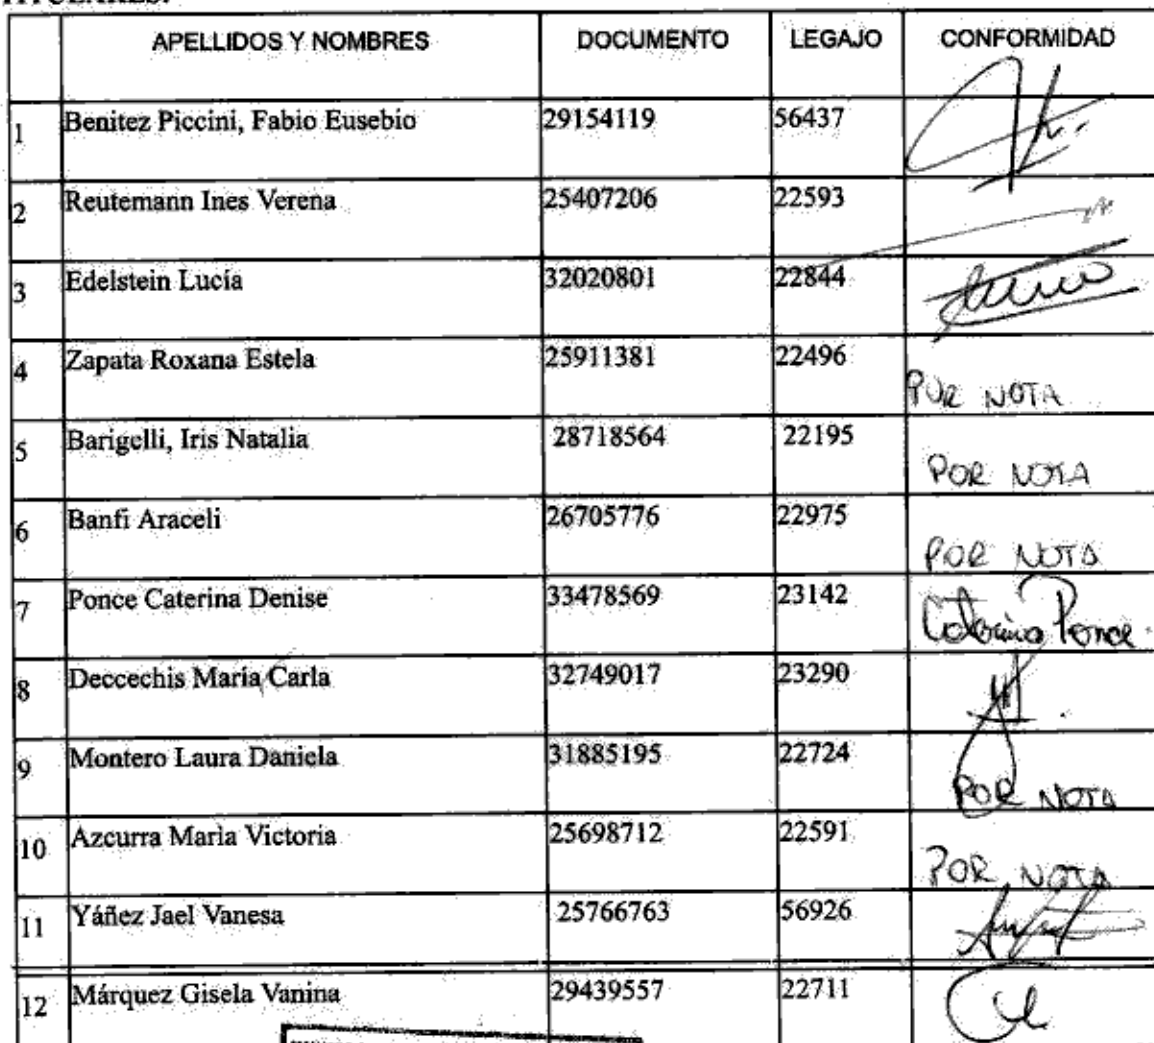 TITULARES:
APELLIDOS Y NOMBRES DOCUMENTO LEGAJO CONFORMIDAD
1 Benitez Piccini, Fabio Eusebio 29154119 56437
2 Reutemann Ines Verena 25407206 22593
3 Edelstein Lucía 32020801 22844
4 Zapata Roxana Estela 25911381 22496 POR NOTA
5 Barigelli, Iris Natalia 28718564 22195 POR NOTA
6 Banfi Araceli 26705776 22975 POR NOTA
7 Ponce Caterina Denise 33478569 23142 Caterina Ponce
8 Deccechis María Carla 32749017 23290
9 Montero Laura Daniela 31885195 22724 POR NOTA
10 Azcurra Marìa Victoria 25698712 22591 POR NOTA
11 Yáñez Jael Vanesa 25766763 56926
12 Márquez Gisela Vanina 29439557 22711